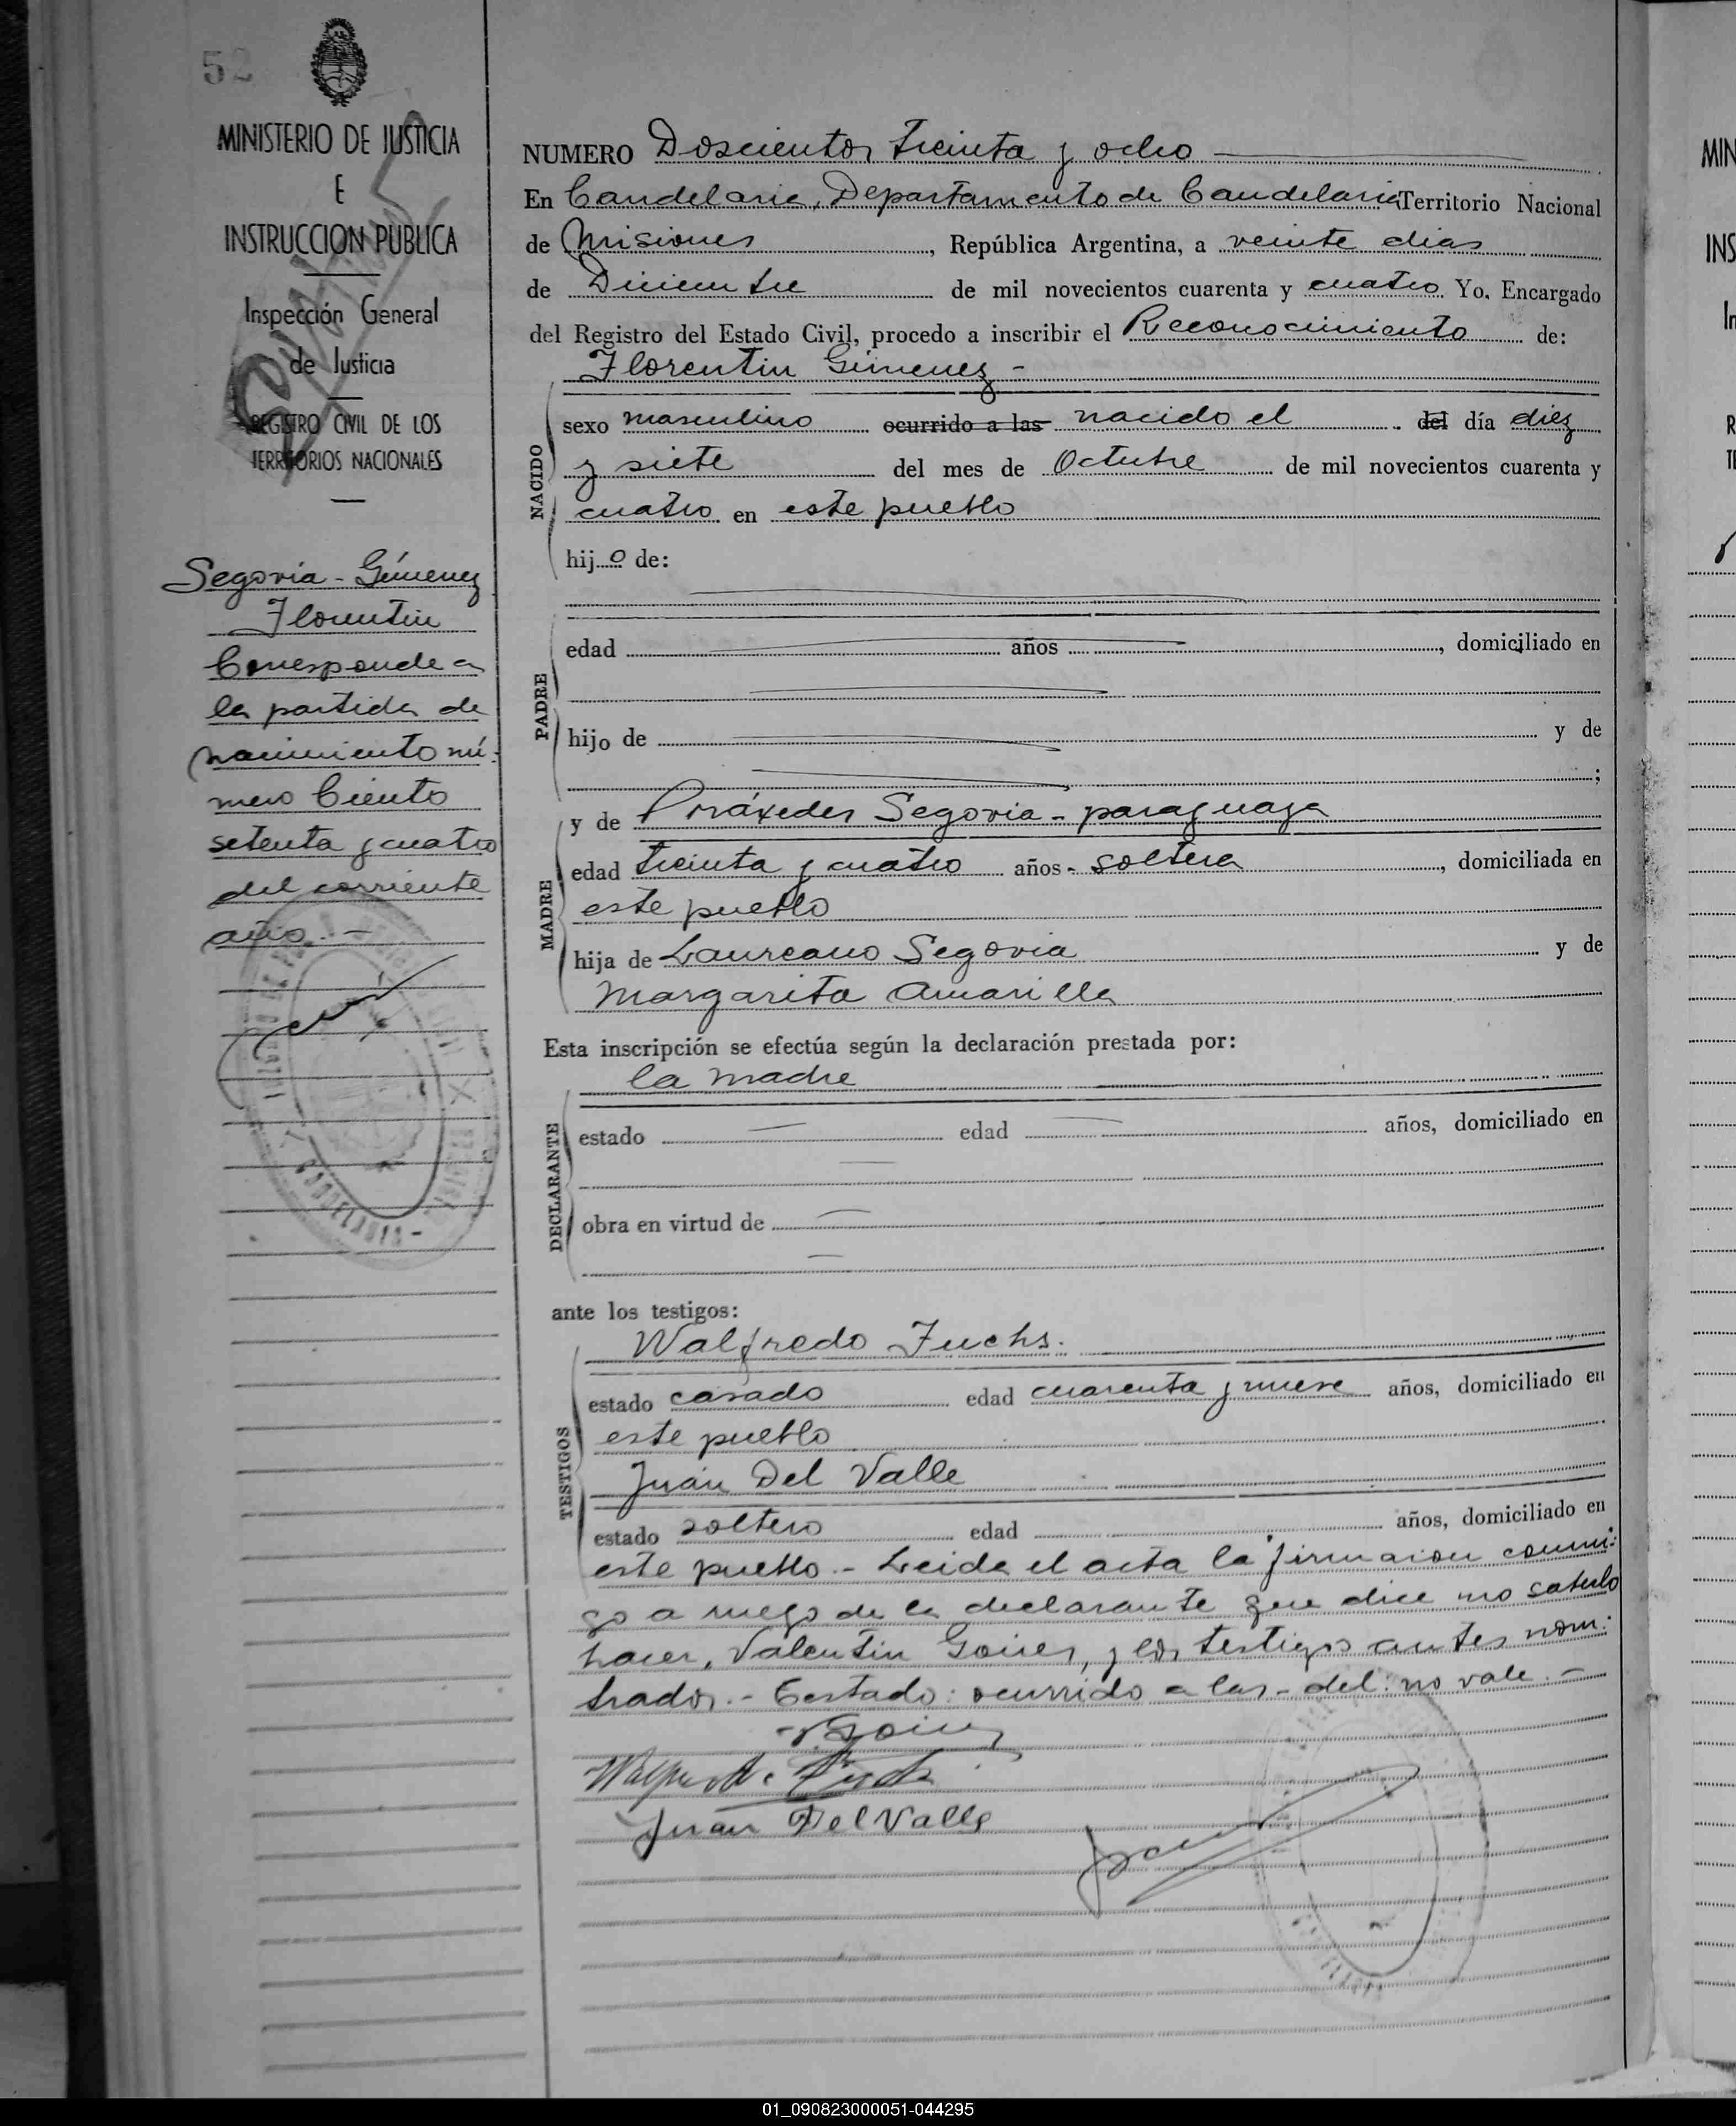 52
MINISTERIO DE JUSTICIA
E
INSTRUCCION PUBLICA
Inspección General
de Justicia
REGISTRO CIVIL DE LOS
TERRITORIOS NACIONALES
Segovia - Gímenez
Florentin
Corresponde a
la partida de
nacimiento nú-
mero Ciento
setenta y cuatro
del corriente
año.-
NUMERO Doscientos treinta y ocho
En Candelaria, Departamento de Candelaria Territorio Nacional
de Misiones, República Argentina, a veinte dias
de Diciembre de mil novecientos cuarenta y cuatro Yo, Encargado
del Registro del Estado Civil, procedo a inscribir el Reconocimiento de:
Florentin Gímenez -
NACIDO
sexo masculino ocurrido a las nacido el del día diez
y siete del mes de Octubre de mil novecientos cuarenta y
cuatro en este pueblo
hijo de:
PADRE
edad años, domiciliado en
hijo de y de
;
MADRE
y de Práxedes Segovia - paraguaya
edad treinta y cuatro años - soltera, domiciliada en
este pueblo
hija de Laureano Segovia y de
Margarita Amarilla
Esta inscripción se efectúa según la declaración prestada por:
la madre
DECLARANTE
estado edad años, domiciliado en
obra en virtud de
ante los testigos:
TESTIGOS
Walfredo Fuchs.
estado casado edad cuarenta y nueve años, domiciliado en
este pueblo
Juan Del Valle
estado soltero edad años, domiciliado en
este pueblo.- Leida el acta la firmaron conmi-
go a ruego de la declarante que dice no saberlo
hacer, Valentin Goires, y los testigos antes nom-
brados.- Testado: ocurrido a las - del: no vale.-
Juan Del Valle
01_090823000051-044295